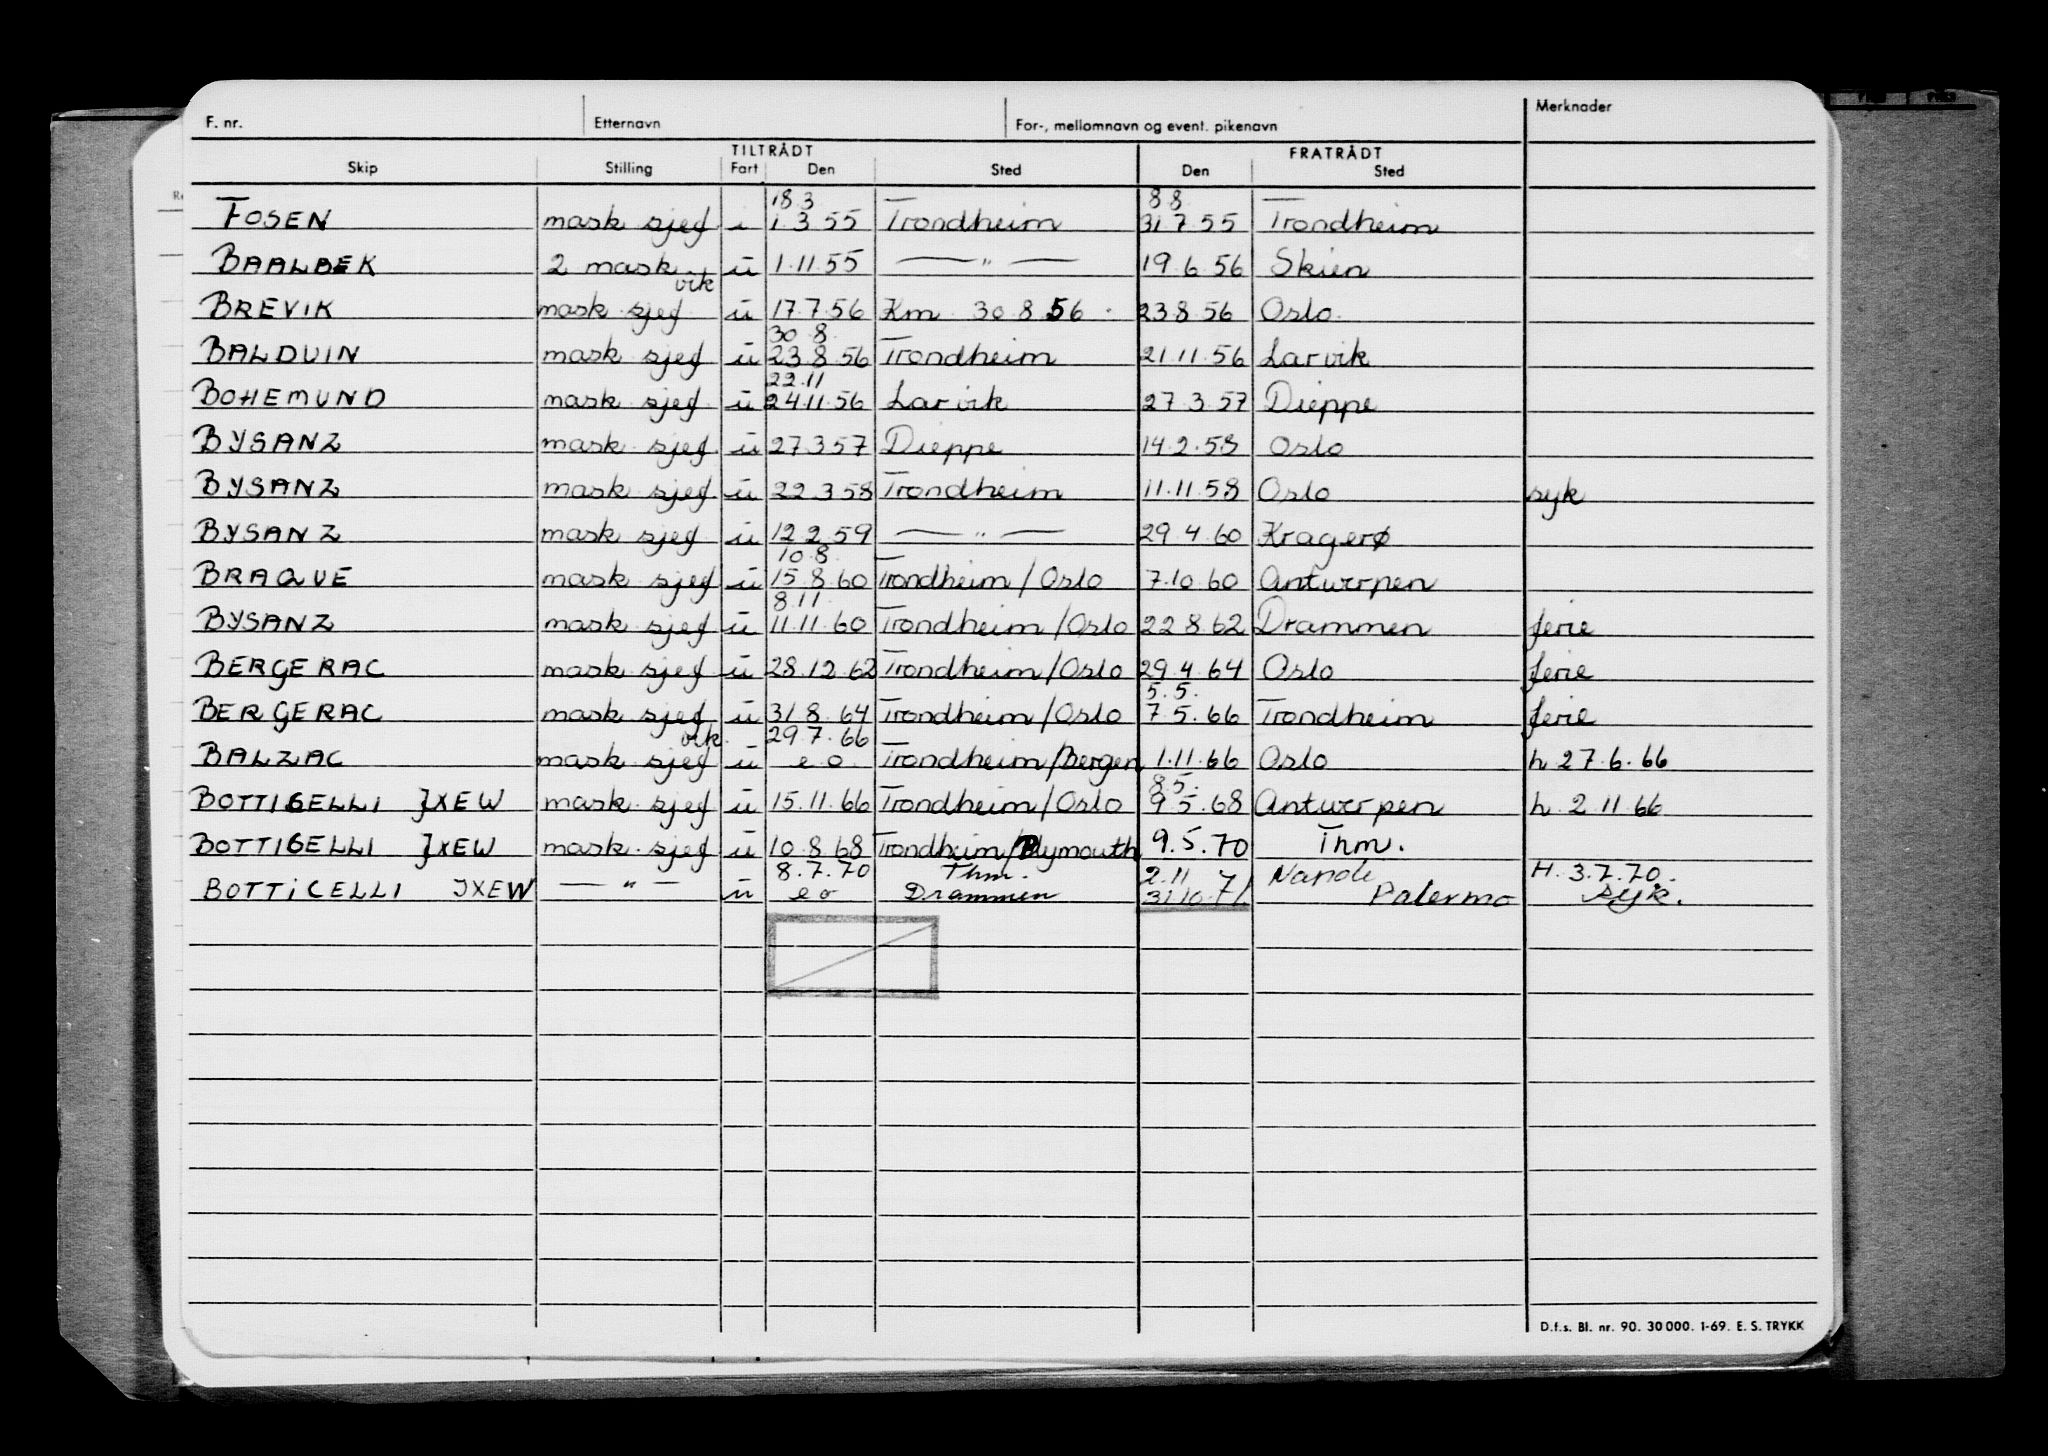 F. nr. Etternavn For-, mellomnavn og event. pikenavn Merknader
TILTRÅDT FRATRÅDT
Skip Stilling Fart Den Sted Den Sted
18.3 8.8
FOSEN mask sjef i 1.3.55 Trondheim 31.7.55 Trondheim
BAALBEK 2 mask u 1.11.55 — " — 19.6.56 Skien
vik
BREVIK mask sjef u 17.7.56 Km 30.8.56 23.8.56 Oslo
30.8
BALDUIN mask sjef u 23.8.56 Trondheim 21.11.56 Larvik
22.11
BOHEMUND mask sjef u 24.11.56 Larvik 27.3.57 Dieppe
BYSANZ mask sjef u 27.3.57 Dieppe 14.2.58 Oslo
BYSANZ mask sjef u 22.3.58 Trondheim 11.11.58 Oslo syk
BYSANZ mask sjef u 12.2.59 — " — 29.4.60 Kragerø
10.8
BRAQUE mask sjef u 15.8.60 Trondheim/Oslo 7.10.60 Antwerpen
8.11
BYSANZ mask sjef u 11.11.60 Trondheim/Oslo 22.8.62 Drammen ferie
BERGERAC mask sjef u 28.12.62 Trondheim/Oslo 29.4.64 Oslo ferie
5.5.
BERGERAC mask sjef u 31.8.64 Trondheim/Oslo 7.5.66 Trondheim ferie
vik 29.7.66
BALZAC mask sjef u e o Trondheim/Bergen 1.11.66 Oslo h 27.6.66
8.5.
BOTTIGELLI JXEW mask sjef u 15.11.66 Trondheim/Oslo 9.5.68 Antwerpen h 2.11.66
BOTTIGELLI JXEW mask sjef u 10.8.68 Trondheim/Plymouth 9.5.70 Thm.
8.7.70 Thm. 2.11 Napoli H. 3.7.70.
BOTTICELLI JXEW — " — u e o Drammen 31.10.71 Palermo syk.
D.f.s. Bl. nr. 90. 30 000. 1-69. E. S. TRYKK